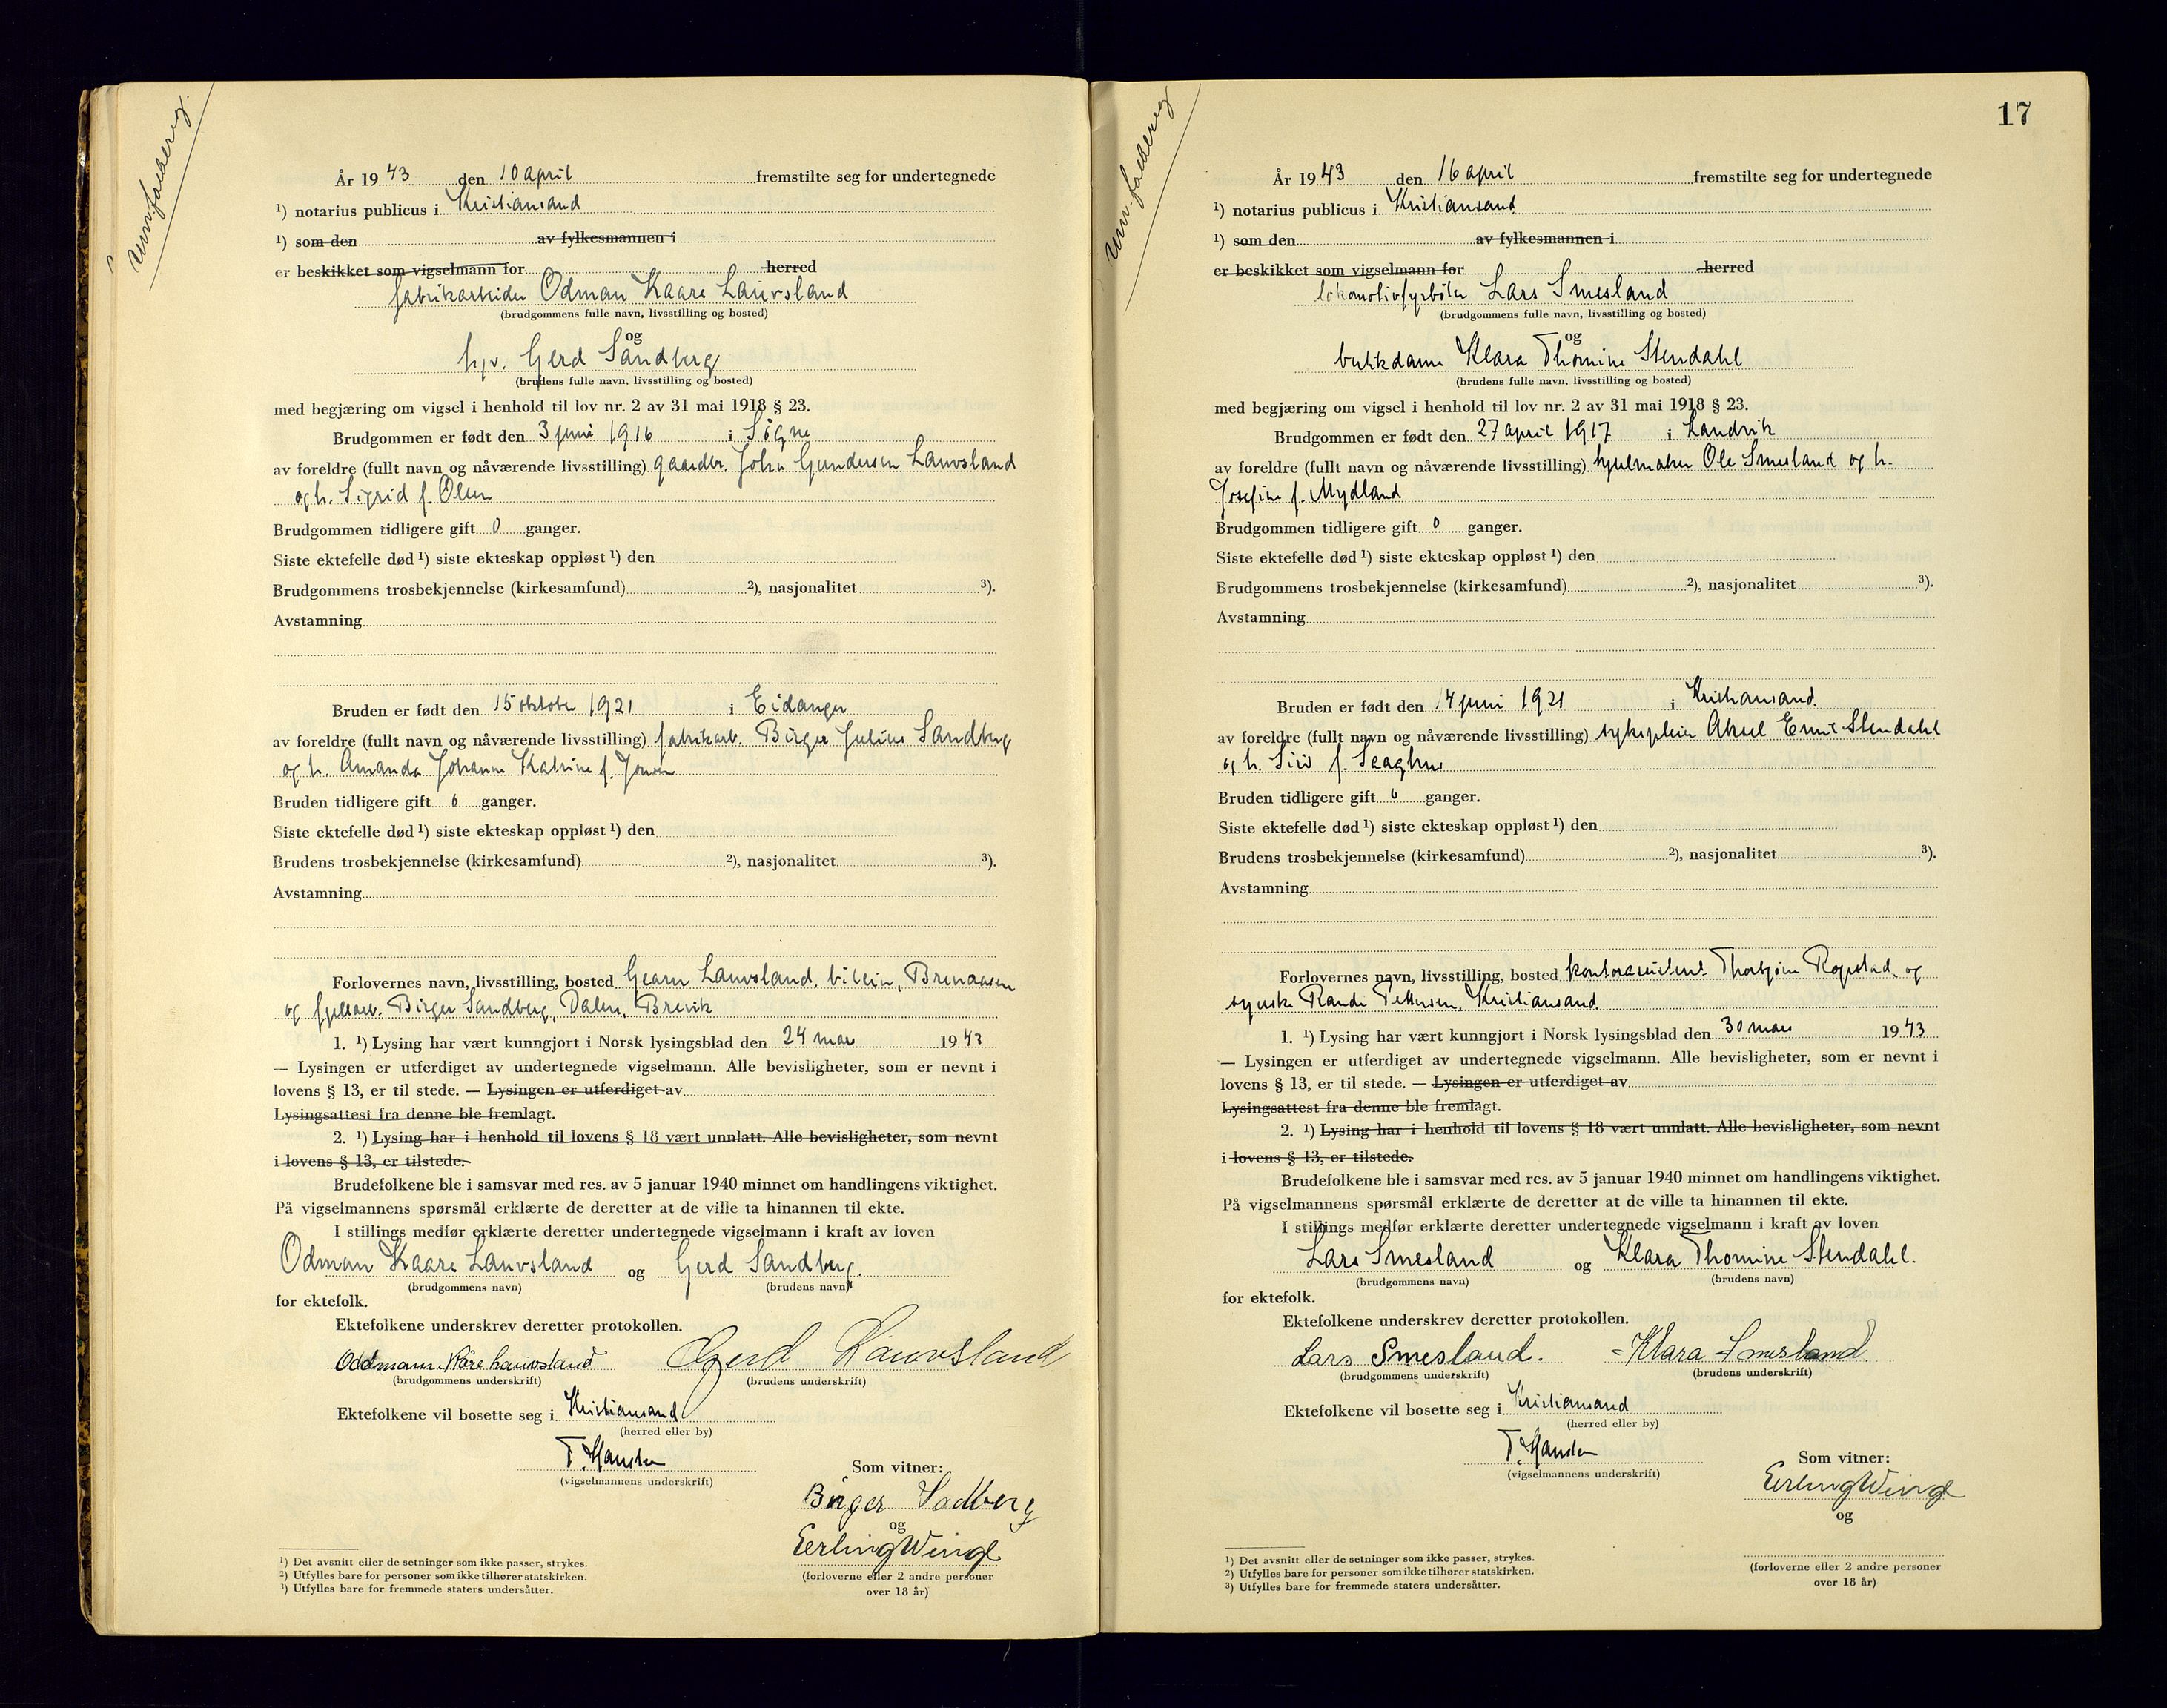 År 1943 den 10 april fremstilte seg for undertegnede
¹) notarius publicus i Kristiansand
¹) som den av fylkesmannen i
er beskikket som vigselmann for herred
fabrikarbeider Odman Kaare Lauvsland
(brudgommens fulle navn, livsstilling og bosted)
og
hjv. Gerd Sandberg
(brudens fulle navn, livsstilling og bosted)
med begjæring om vigsel i henhold til lov nr. 2 av 31 mai 1918 § 23.
Brudgommen er født den 3 juni 1916 i Søgne
av foreldre (fullt navn og nåværende livsstilling) gaardbr. John Gundersen Lauvsland
og h. Sigrid f. Olsen
Brudgommen tidligere gift 0 ganger.
Siste ektefelle død ¹) siste ekteskap oppløst ¹) den
Brudgommens trosbekjennelse (kirkesamfund) ²), nasjonalitet ³).
Avstamning
Bruden er født den 15 oktober 1921 i Eidanger
av foreldre (fullt navn og nåværende livsstilling) fabrikarb. Birger Julius Sandberg
og h. Amanda Johanne Katrine f. Jonsen
Bruden tidligere gift 0 ganger.
Siste ektefelle død ¹) siste ekteskap oppløst ¹) den
Brudens trosbekjennelse (kirkesamfund) ²), nasjonalitet ³).
Avstamning
Forlovernes navn, livsstilling, bosted Lauvsland,
og Birger Sandberg, Dalen, Brevik
1. ¹) Lysing har vært kunngjort i Norsk lysingsblad den 24 mars 1943
— Lysingen er utferdiget av undertegnede vigselmann. Alle bevisligheter, som er nevnt i
lovens § 13, er til stede. — Lysingen er utferdiget av
Lysingsattest fra denne ble fremlagt.
2. ¹) Lysing har i henhold til lovens § 18 vært unnlatt. Alle bevisligheter, som nevnt
i lovens § 13, er tilstede.
Brudefolkene ble i samsvar med res. av 5 januar 1940 minnet om handlingens viktighet.
På vigselmannens spørsmål erklærte de deretter at de ville ta hinannen til ekte.
I stillings medfør erklærte deretter undertegnede vigselmann i kraft av loven
Odman Kaare Lauvsland og Gerd Sandberg.
(brudgommens navn) (brudens navn)
for ektefolk.
Ektefolkene underskrev deretter protokollen.
Oddmann Kåre Lauvsland Gerd Lauvsland
(brudgommens underskrift) (brudens underskrift)
Ektefolkene vil bosette seg i Kristiansand
(herred eller by)
T. Hansen
(vigselmannens underskrift)
Som vitner:
Birger Sadberg
og
Erling Winge
(forloverne eller 2 andre personer
over 18 år)
¹) Det avsnitt eller de setninger som ikke passer, strykes.
²) Utfylles bare for personer som ikke tilhører statskirken.
³) Utfylles bare for fremmede staters undersåtter.
17
År 1943 den 16 april fremstilte seg for undertegnede
¹) notarius publicus i Kristiansand
¹) som den av fylkesmannen i
er beskikket som vigselmann for herred
lokomotivfyrbøter Lars Smesland
(brudgommens fulle navn, livsstilling og bosted)
og
butikdame Klara Thomine Stendahl
(brudens fulle navn, livsstilling og bosted)
med begjæring om vigsel i henhold til lov nr. 2 av 31 mai 1918 § 23.
Brudgommen er født den 27 april 1917 i Landvik
av foreldre (fullt navn og nåværende livsstilling) hjulmaker Ole Smesland og h.
Josefine f. Mydland
Brudgommen tidligere gift 0 ganger.
Siste ektefelle død ¹) siste ekteskap oppløst ¹) den
Brudgommens trosbekjennelse (kirkesamfund) ²), nasjonalitet ³).
Avstamning
Bruden er født den 14 juni 1921 i Kristiansand.
av foreldre (fullt navn og nåværende livsstilling) sykepleier Aksel Emil Stendahl
og h. Siri f.
Bruden tidligere gift 0 ganger.
Siste ektefelle død ¹) siste ekteskap oppløst ¹) den
Brudens trosbekjennelse (kirkesamfund) ²), nasjonalitet ³).
Avstamning
Forlovernes navn, livsstilling, bosted kontorassistent Thorbjørn Ropstad og
syerske Randi Pettersen, Kristiansand.
1. ¹) Lysing har vært kunngjort i Norsk lysingsblad den 30 mars 1943
— Lysingen er utferdiget av undertegnede vigselmann. Alle bevisligheter, som er nevnt i
lovens § 13, er til stede. — Lysingen er utferdiget av
Lysingsattest fra denne ble fremlagt.
2. ¹) Lysing har i henhold til lovens § 18 vært unnlatt. Alle bevisligheter, som nevnt
i lovens § 13, er tilstede.
Brudefolkene ble i samsvar med res. av 5 januar 1940 minnet om handlingens viktighet.
På vigselmannens spørsmål erklærte de deretter at de ville ta hinannen til ekte.
I stillings medfør erklærte deretter undertegnede vigselmann i kraft av loven
Lars Smesland og Klara Thomine Stendahl.
(brudgommens navn) (brudens navn)
for ektefolk.
Ektefolkene underskrev deretter protokollen.
Lars Smesland. Klara Smesland.
(brudgommens underskrift) (brudens underskrift)
Ektefolkene vil bosette seg i Kristiansand
(herred eller by)
T. Hansen
(vigselmannens underskrift)
Som vitner:
Erling Winge
og
(forloverne eller 2 andre personer
over 18 år)
¹) Det avsnitt eller de setninger som ikke passer, strykes.
²) Utfylles bare for personer som ikke tilhører statskirken.
³) Utfylles bare for fremmede staters undersåtter.